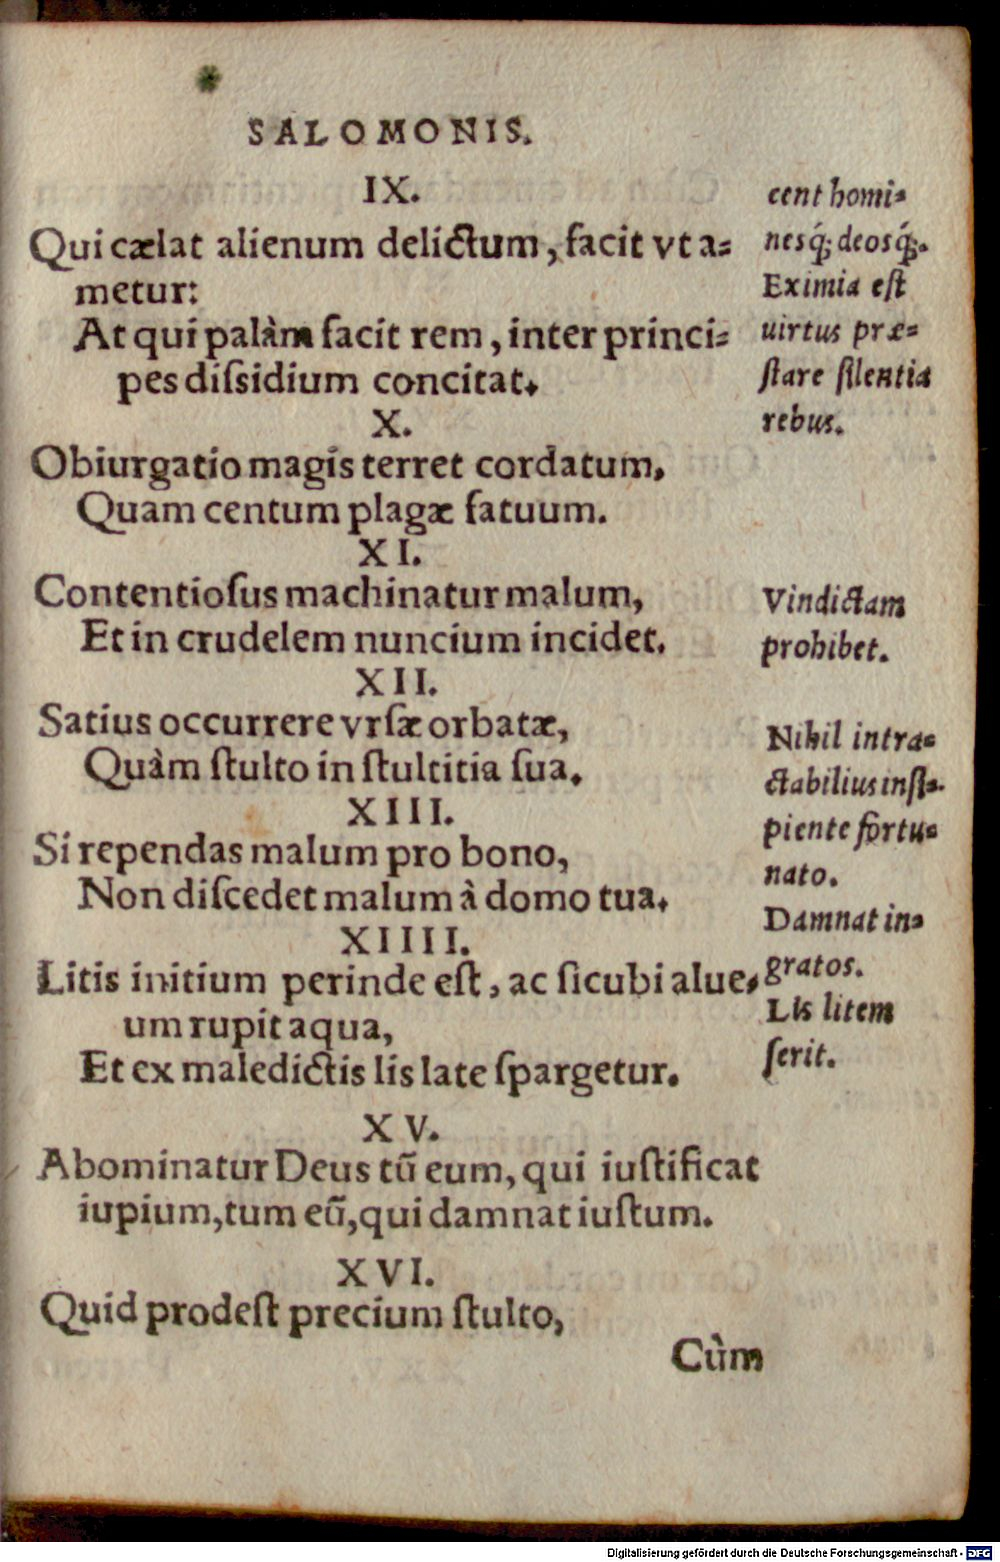 SALOMONIS.
IX.
Qui cælat alienum delictum, facit vt a-
metur:
At qui palàm facit rem, inter princi-
pes dissidium concitat.
X.
Obiurgatio magis terret cordatum,
Quam centum plagæ fatuum.
XI.
Contentiosus machinatur malum,
Et in crudelem nuncium incidet.
XII.
Satius occurrere vrsæ orbatæ,
Quàm stulto in stultitia sua.
XIII.
Si rependas malum pro bono,
Non discedet malum à domo tua.
XIIII.
Litis initium perinde est, ac sicubi alue-
um rupit aqua,
Et ex maledictis lis late spargetur.
XV.
Abominatur Deus tū eum, qui iustificat
iupium, tum eū, qui damnat iustum.
XVI.
Quid prodest precium stulto,
Cùm
cent homi-
nesq́; deosq́;.
Eximia est
uirtus præ-
stare silentia
rebus.
Vindictam
prohibet.
Nihil intra-
ctabilius insi-
piente fortu-
nato.
Damnat in-
gratos.
Lis litem
serit.
Digitalisierung gefördert durch die Deutsche Forschungsgemeinschaft - DFG